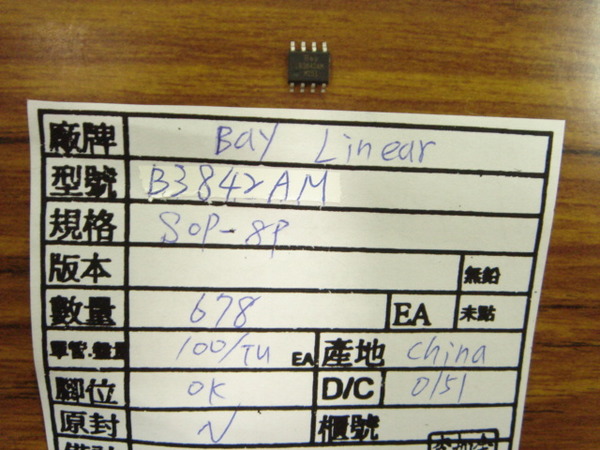 Bay
廠牌 Bay Linear
型號 B3842AM
規格 SOP-8P
版本 無鉛
數量 678 EA 未點
單管.盤量 100/TU EA 產地 China
腳位 OK D/C 0151
原封 N 櫃號